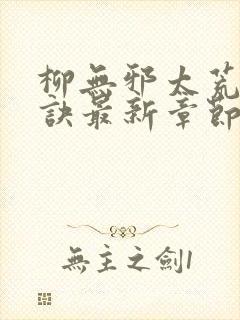 柳無邪太荒
訣最新章節
無主之劍1